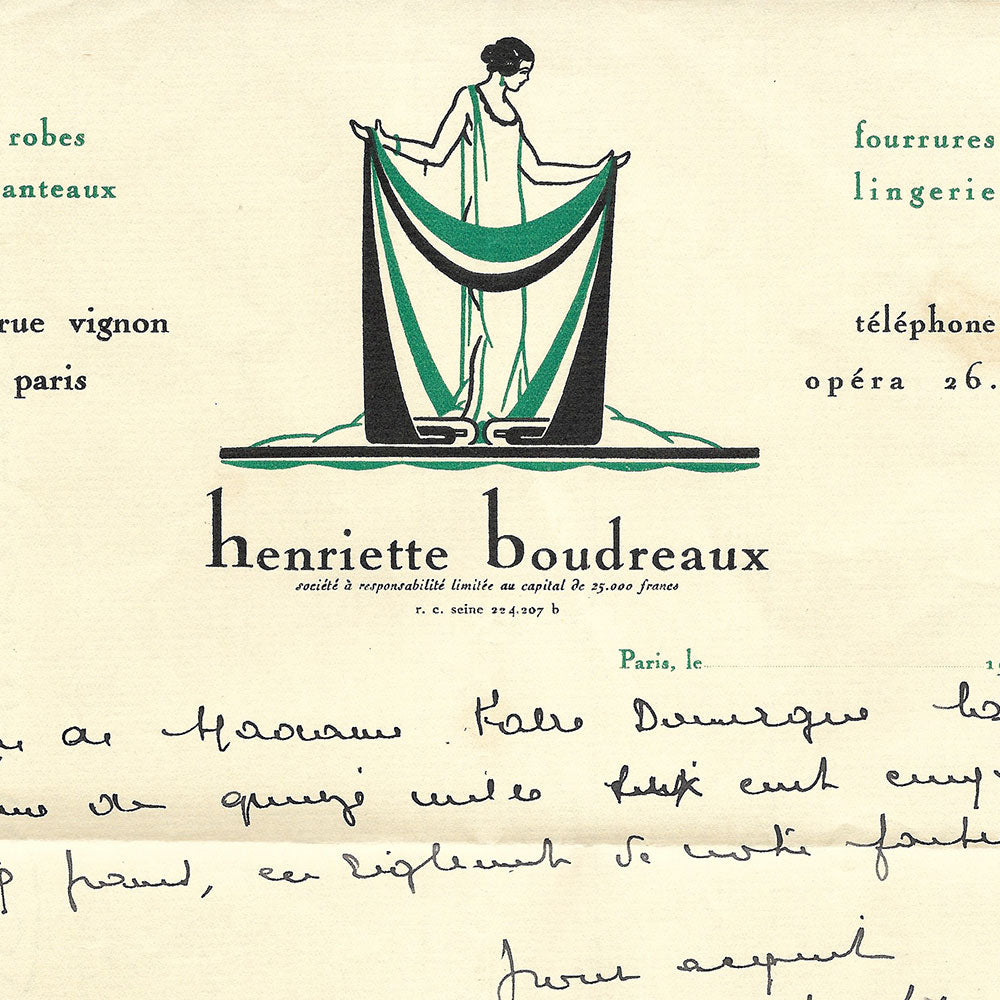 robes
fourrures
anteaux
lingerie
rue vignon
téléphone
paris
opéra 26.
henriette boudreaux
société à responsabilité limitée au capital de 25.000 francs
r. c. seine 224.207 b
Paris, le 19
de Madame Dumergue la
de quinze mille cent cinq
francs, en règlement de notre factu
Pour acquit